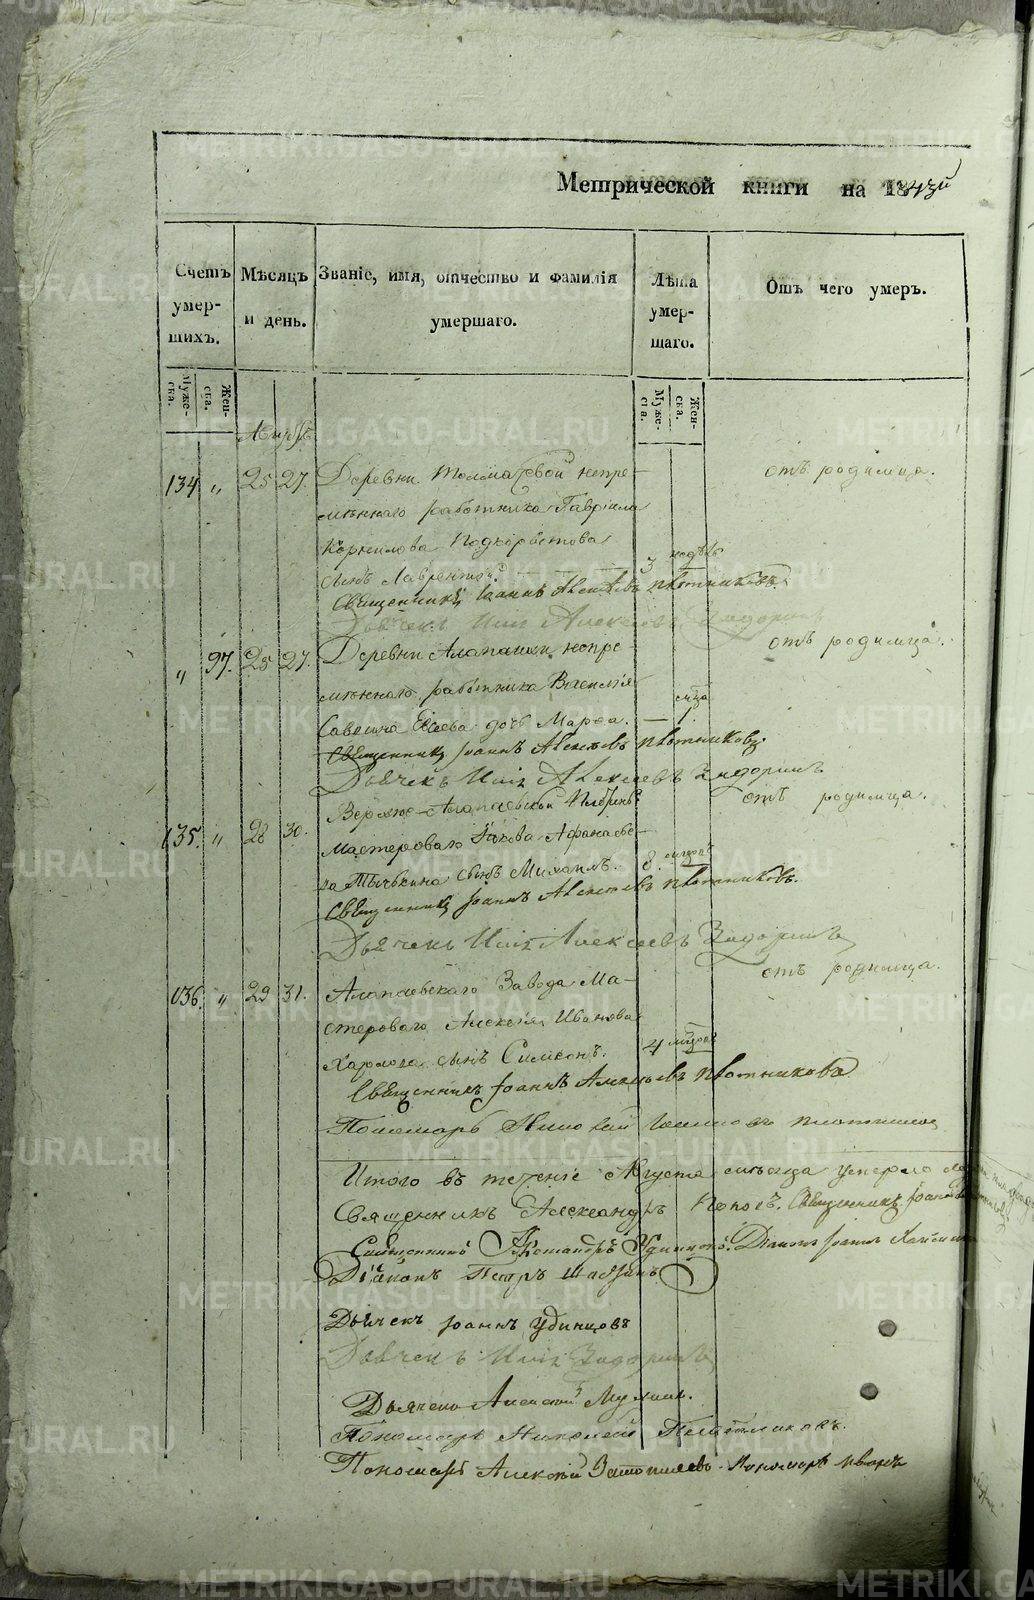 Метрической книги на 1843й
Счетъ умер-шихъ.
Мѣсяцъ и день.
Званіе, имя, отчество и фамилія умершаго.
Лѣта умер-шаго.
Отъ чего умеръ.
Муже-ска.
Жен-ска.
Муже-ска.
Жен-ска.
134 " 25 27. Деревни Толмачевой непре-
отъ родимца.
мѣннаго работника Гавріила
Корнилова Подкорытова
сынъ Лаврентій. 3 недѣль
Священникъ Іоаннъ Алексѣевъ Плотниковъ.
Дьячекъ Илія Алексѣевъ Задоринъ
" 97. 25 27. Деревни Алапаихи непре-
отъ родимца.
мѣннаго работника Василія
Саввина Евсева дочь Марѳа. — 1. мца
Священникъ Іоаннъ Алексѣевъ Плотниковъ.
Дьячекъ Илія Алексѣевъ Задоринъ
отъ родимца.
135. " 28 30. Верхне-Алапаевской Фабрики
мастероваго Якова Афанасье-
ва Тычкина сынъ Михаилъ. 8. мцовъ
Священникъ Іоаннъ Алексѣевъ Плотниковъ.
Дьячекъ Илія Алексѣевъ Задоринъ
отъ родимца.
136. " 29 31. Алапаевскаго Завода Ма-
стероваго Алексія Иванова
Харлова сынъ Симеонъ. 4 мцовъ
Священникъ Іоаннъ Алексѣевъ Плотниковъ
Пономарь Николай Плотниковъ
Итого въ теченіе Августа мѣсяца умерло
Священникъ Александръ Поповъ. Священникъ Іоаннъ
Священникъ Александръ Удинцовъ. Діаконъ Іоаннъ
Діаконъ Петръ Шабринъ
Дьячекъ Іоаннъ Удинцовъ
Дьячекъ Илія Задоринъ
Дьячекъ Алексій
Пономарь Николай Плотниковъ.
Пономарь Алексій Пономарь Иванъ
METRIKI.GASO-URAL.RU